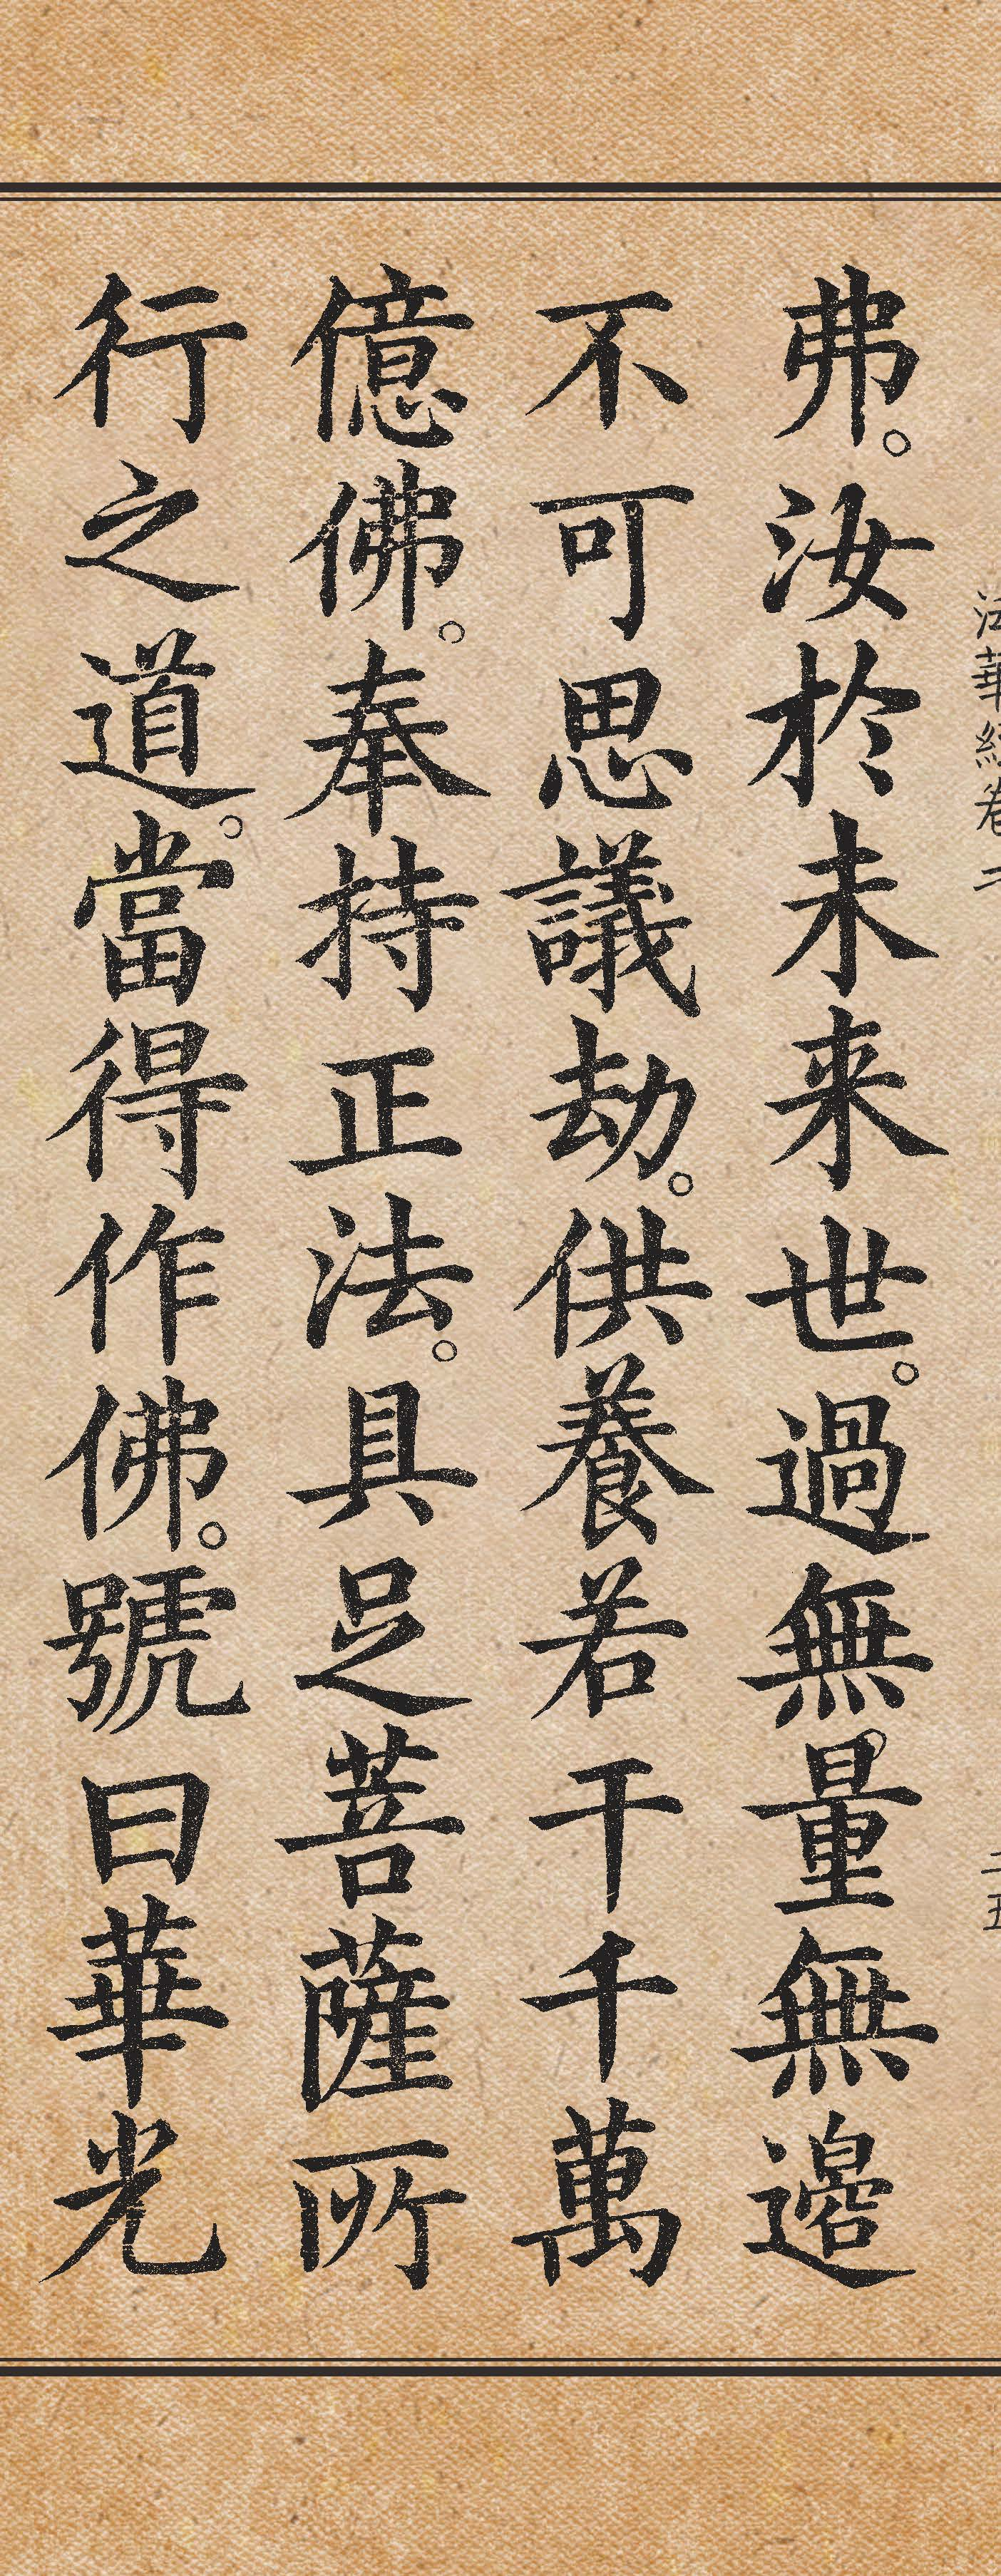 法華經卷二
二五
弗。汝於未来世。過無量無邊
不可思議劫。供養若干千萬
億佛。奉持正法。具足菩薩所
行之道。當得作佛。號曰華光